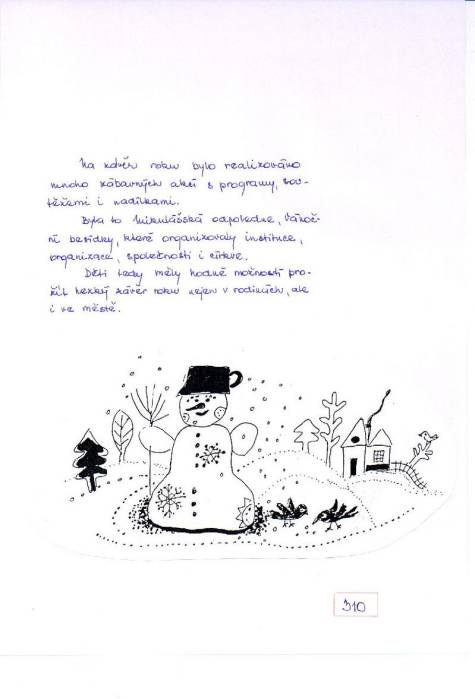 Na závěr roku bylo realizováno
mnoho zábavných akcí s programy, sou-
těžemi i nadílkami.
Byla to Mikulášská odpoledne, Vánoč-
ní besídky, které organizovaly instituce,
organizace, společnosti i církve.
Děti tedy měly hodně možností pro-
žít hezký závěr roku nejen v rodinách, ale
i ve městě.
310